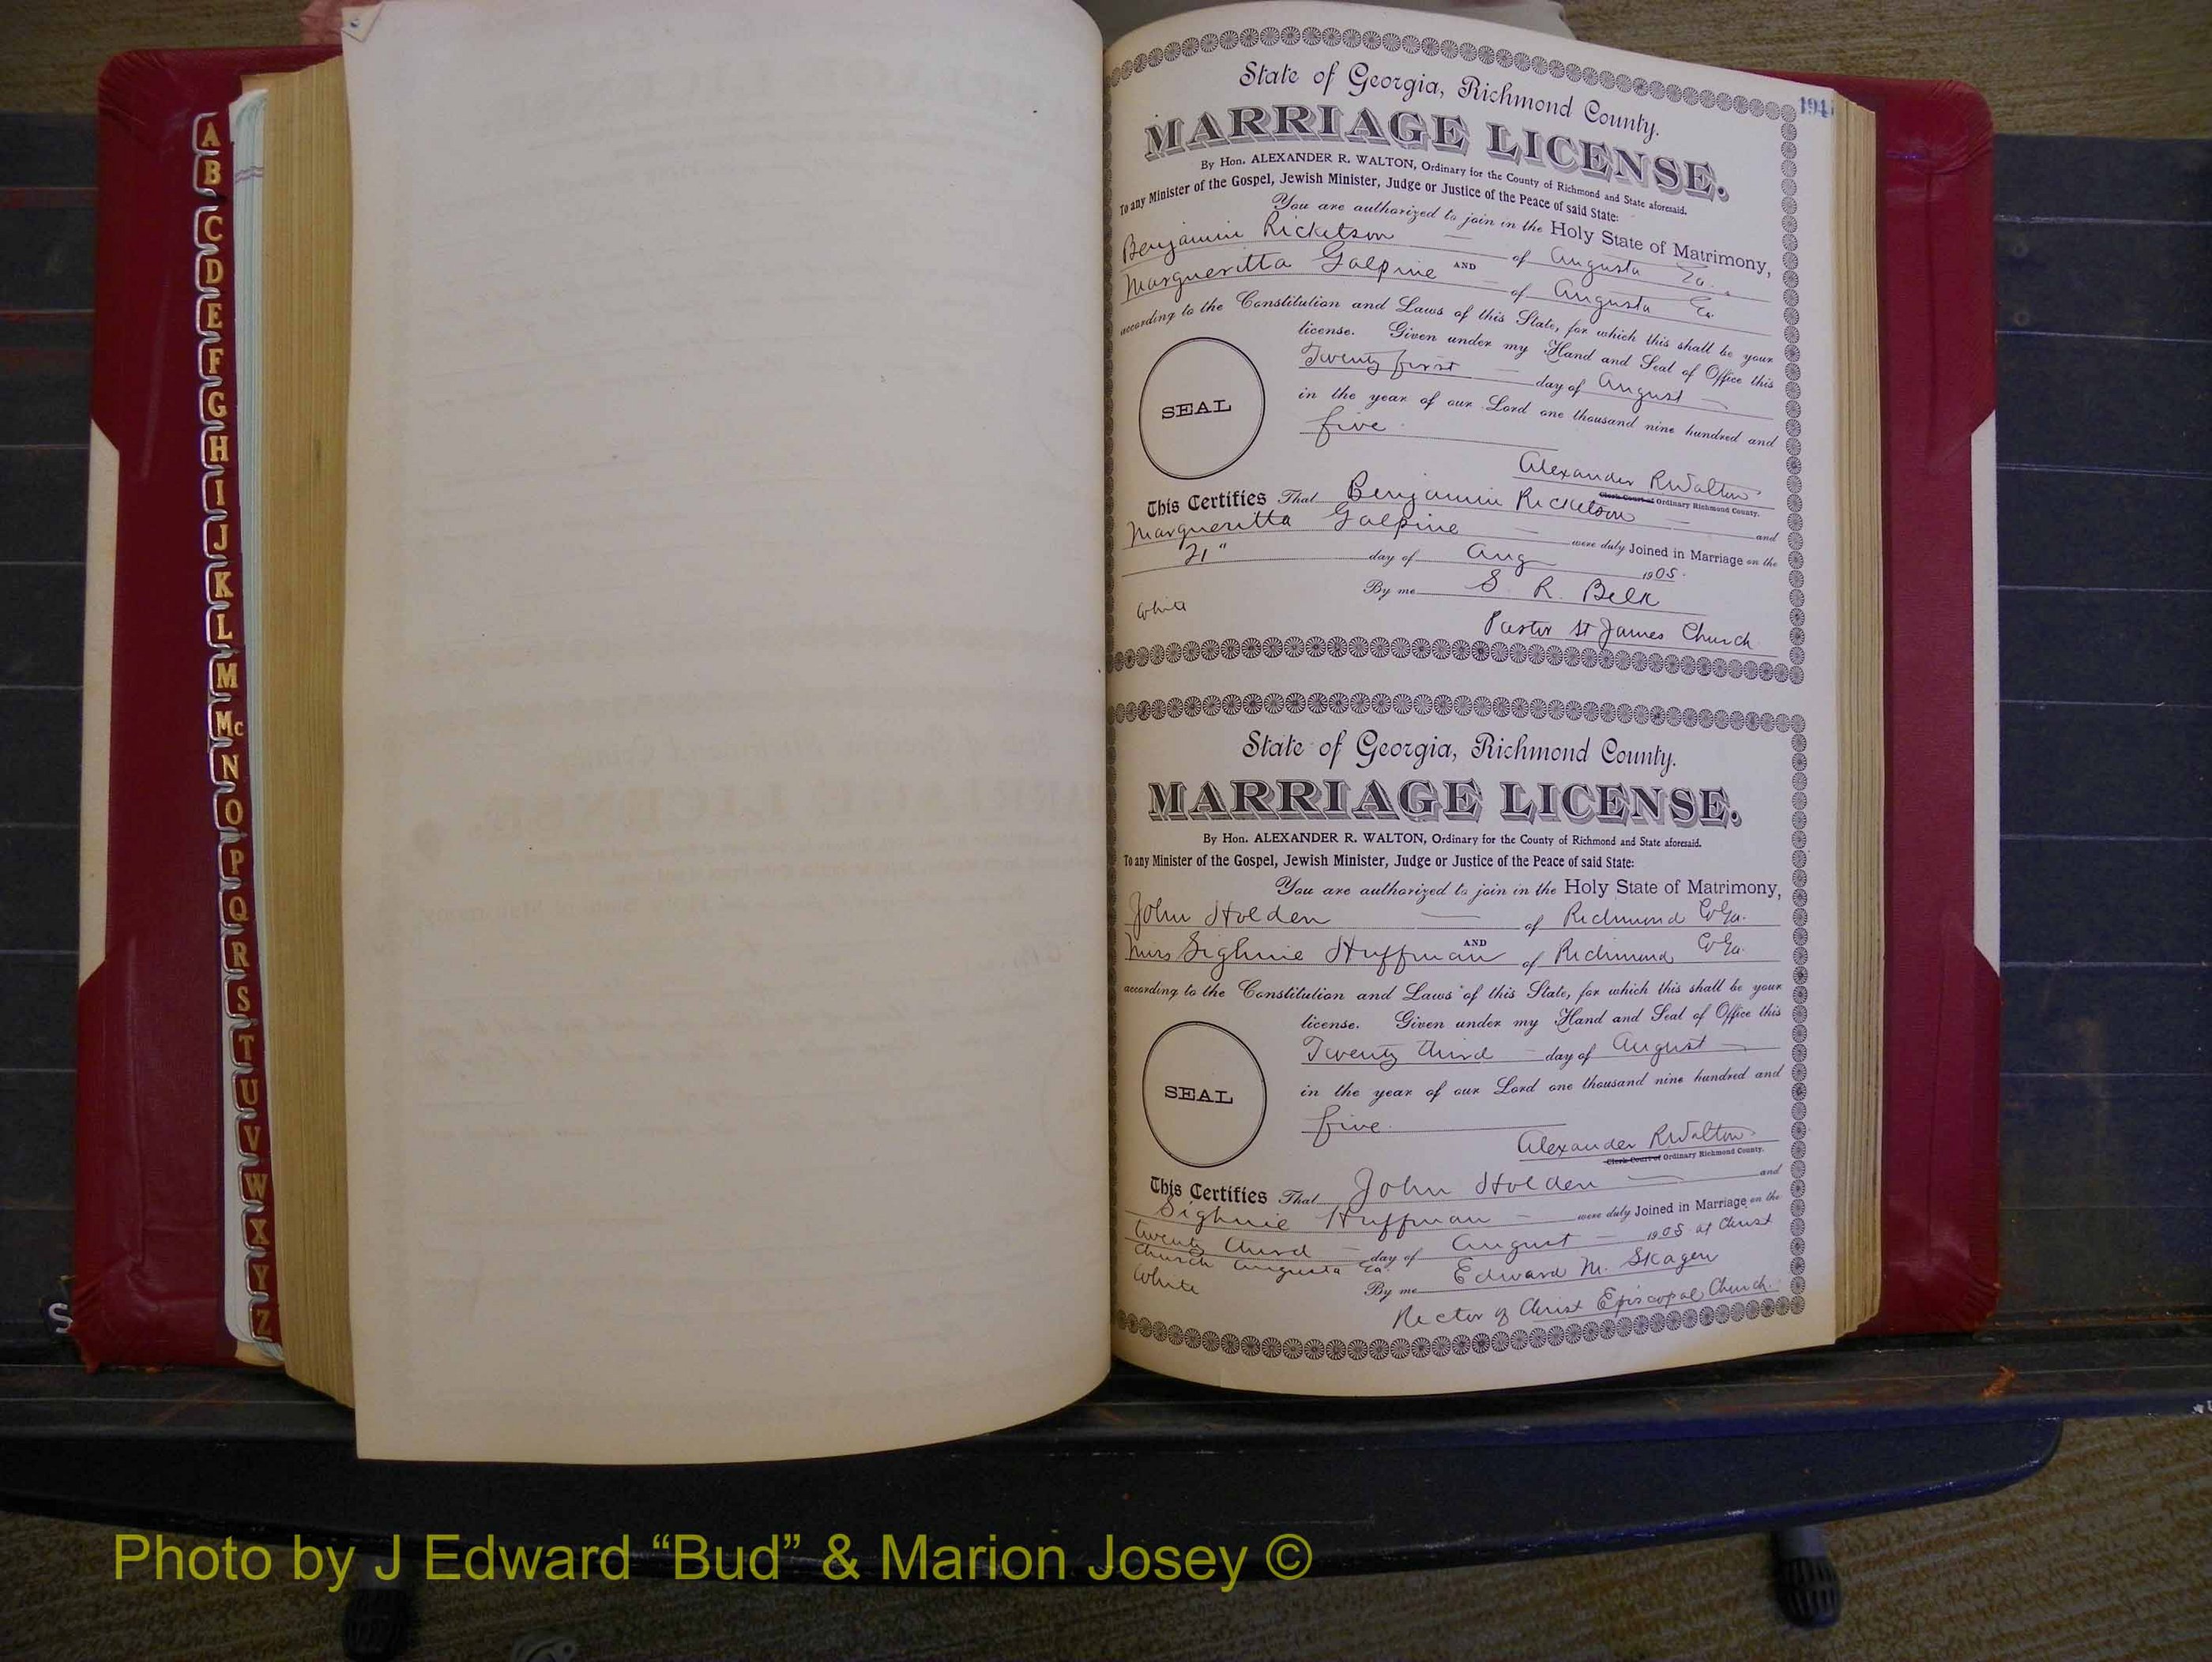 A
B
C
D
E
F
G
H
I
J
K
L
M
Mc
N
O
P
Q
R
S
T
U
V
W
X
Y
Z
194
State of Georgia, Richmond County.
MARRIAGE LICENSE.
By Hon. ALEXANDER R. WALTON, Ordinary for the County of Richmond and State aforesaid.
To any Minister of the Gospel, Jewish Minister, Judge or Justice of the Peace of said State:
You are authorized to join in the Holy State of Matrimony,
Benjamin Ricketson of Augusta Ga.
AND
Margueritta Galpine of Augusta Ga.
according to the Constitution and Laws of this State, for which this shall be your
license. Given under my Hand and Seal of Office this
Twenty first day of August
in the year of our Lord one thousand nine hundred and
five
SEAL
Alexander R Walton
Clerk Court of Ordinary Richmond County.
This Certifies That Benjamin Ricketson and
Margueritta Galpine were duly Joined in Marriage on the
21" day of Aug 1905.
By me S. R. Belk
White
Pastor St James Church
State of Georgia, Richmond County.
MARRIAGE LICENSE.
By Hon. ALEXANDER R. WALTON, Ordinary for the County of Richmond and State aforesaid.
To any Minister of the Gospel, Jewish Minister, Judge or Justice of the Peace of said State:
You are authorized to join in the Holy State of Matrimony,
John Holden of Richmond Co Ga.
AND
Miss Sighnie Huffman of Richmond Co Ga.
according to the Constitution and Laws of this State, for which this shall be your
license. Given under my Hand and Seal of Office this
Twenty third day of August
in the year of our Lord one thousand nine hundred and
five.
SEAL
Alexander R Walton
Clerk Court of Ordinary Richmond County.
This Certifies That John Holden and
Sighnie Huffman were duly Joined in Marriage on the
twenty third day of August 1905 at Christ
Church Augusta Ga.
By me Edward M. Skagen
White
Rector of Christ Episcopal Church.
Photo by J Edward “Bud” & Marion Josey ©